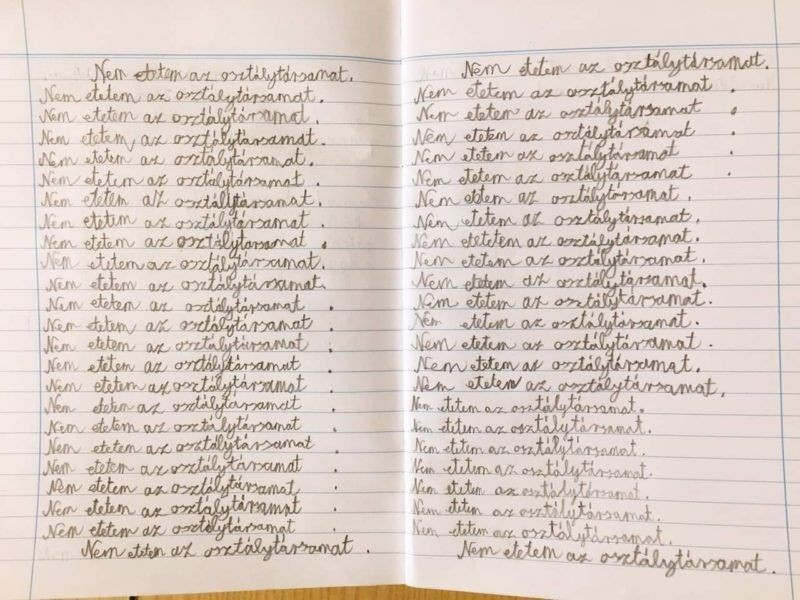 Nem etetem az osztálytársamat.
Nem etetem az osztálytársamat.
Nem etetem az osztálytársamat.
Nem etetem az osztálytársamat.
Nem etetem az osztálytársamat.
Nem etetem az osztálytársamat.
Nem etetem az osztálytársamat.
Nem etetem az osztálytársamat.
Nem etetem az osztálytársamat.
Nem etetem az osztálytársamat.
Nem etetem az osztálytársamat.
Nem etetem az osztálytársamat.
Nem etetem az osztálytársamat.
Nem etetem az osztálytársamat.
Nem etetem az osztálytársamat.
Nem etetem az osztálytársamat.
Nem etetem az osztálytársamat.
Nem etetem az osztálytársamat.
Nem etetem az osztálytársamat.
Nem etetem az osztálytársamat.
Nem etetem az osztálytársamat.
Nem etetem az osztálytársamat.
Nem etetem az osztálytársamat.
Nem etetem az osztálytársamat.
Nem etetem az osztálytársamat.
Nem etetem az osztálytársamat.
Nem etetem az osztálytársamat.
Nem etetem az osztálytársamat.
Nem etetem az osztálytársamat.
Nem etetem az osztálytársamat.
Nem etetem az osztálytársamat.
Nem etetem az osztálytársamat.
Nem etetetem az osztálytársamat.
Nem etetem az osztálytársamat.
Nem etetem az osztálytársamat.
Nem etetem az osztálytársamat.
Nem etetem az osztálytársamat.
Nem etetem az osztálytársamat.
Nem etetem az osztálytársamat.
Nem etetem az osztálytársamat.
Nem etetem az osztálytársamat.
Nem etetem az osztálytársamat.
Nem etetem az osztálytársamat.
Nem etetem az osztálytársamat.
Nem etetem az osztálytársamat.
Nem etetem az osztálytársamat.
Nem etetem az osztálytársamat.
Nem etetem az osztálytársamat.